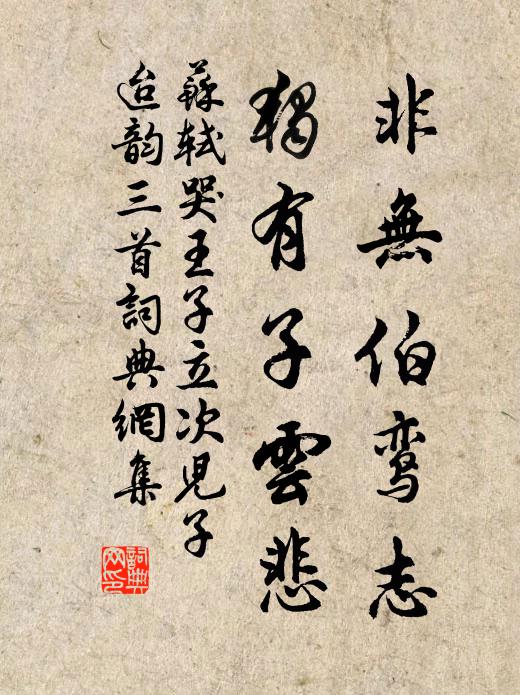 非無伯鸾志
獨有子雲悲
蘇軾哭王子立次兒子
迨韵三首詞典網集
詞典网印